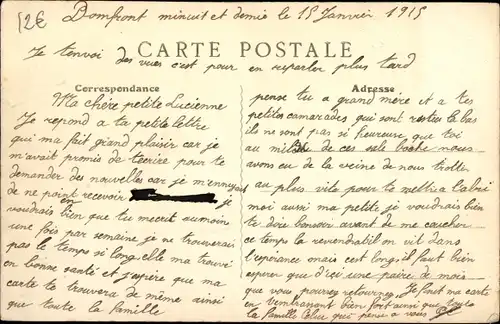 2€
Domfront minuit et demie le 15 Janvier 1915
Je tenvoi des vues c'est pour en reparler plus tard
CARTE POSTALE
Correspondance
Ma chère petite Lucienne
Je repond a ta petite lettre
qui ma fait grand plaisir car je
m'avait promis de t'ecrire pour te
demander des nouvelles car je m'ennuyait
de ne point en recevoir je
voudrais bien que tu mecrit au moin
une fois par semaine je ne trouverais
pas le temps si long elle ma trouvé
en bonne santé et j'spère que ma
carte te trouvera de même ainsi
que toute la famille
Adresse
pense tu a grand mère et a tes
petites camarades qui sont restu la bas
ils ne sont pas si heureuse que toi
au milieu de ces sale boche nous
avons eu de la veine de nous trotter
au plus vite pour te mettre a l'abri
moi aussi ma petite je voudrais bien
te dire bonsoir avant de me coucher
ce temps la revendra til on vit dans
l'esperance mais cest long il faut bien
esperer que d'ici une paire de mois
que vous pourez retourner Je finit ma carte
en t'embrassant bien fort ainsi que toute
la famille qui pense a vous